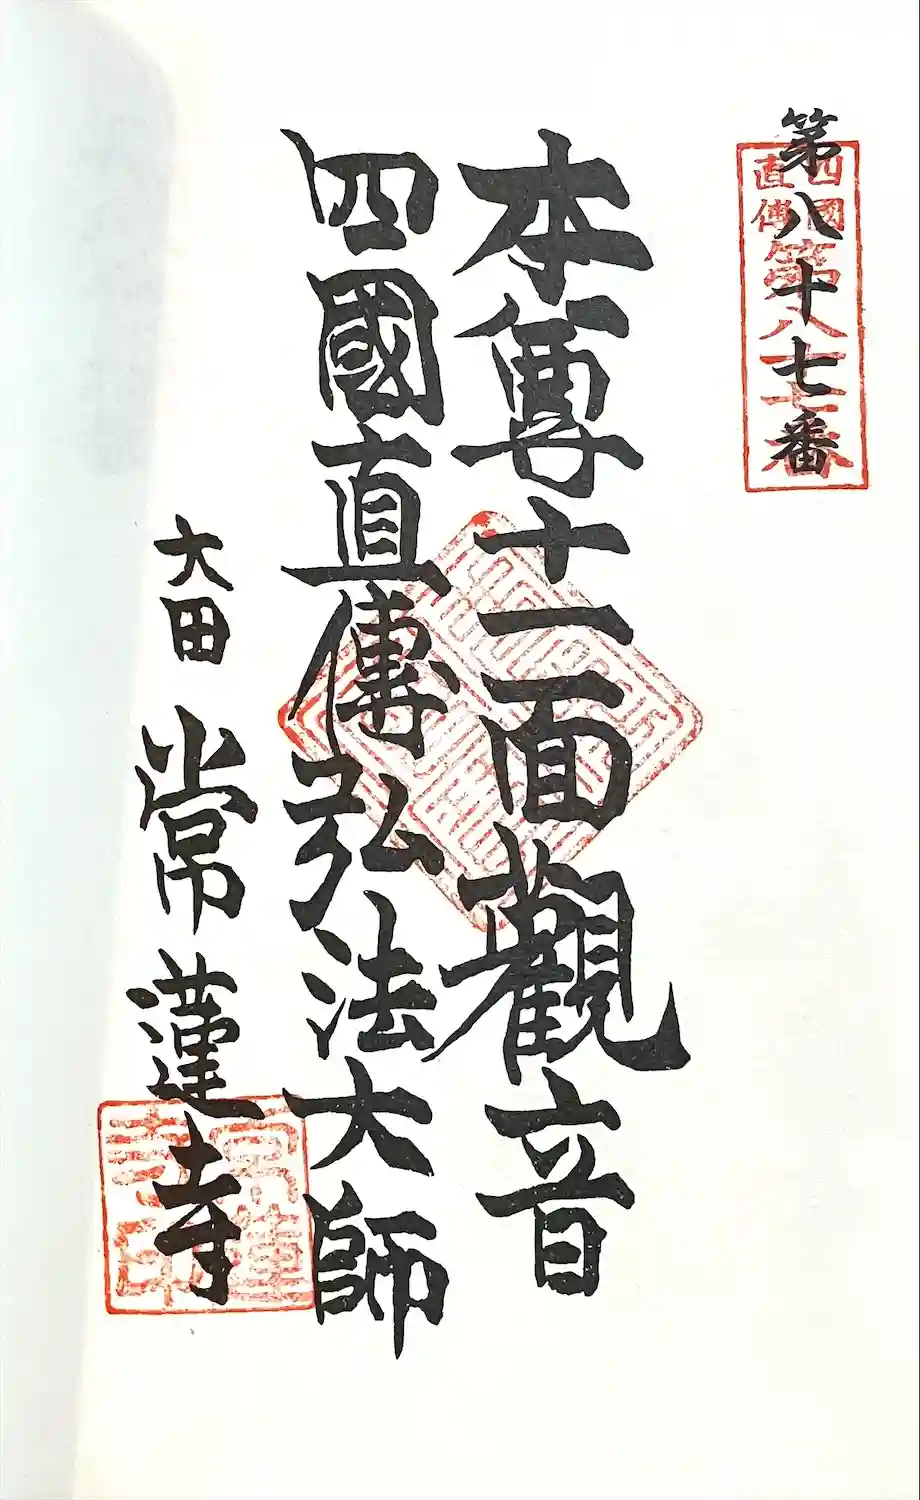 第八十七番
四國
直傳
第八十七番
本尊十一面觀音
四國直傳弘法大師
大田 常蓮寺
常蓮
寺印